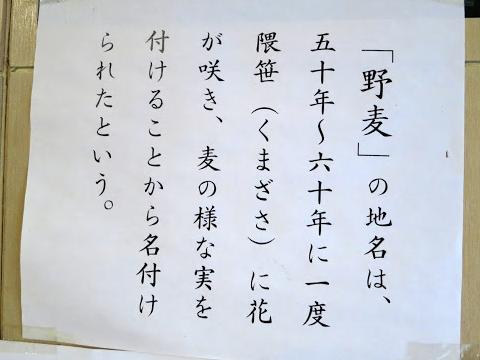 「野麦」の地名は、
五十年～六十年に一度
隈笹（くまざさ）に花
が咲き、麦の様な実を
付けることから名付け
られたという。